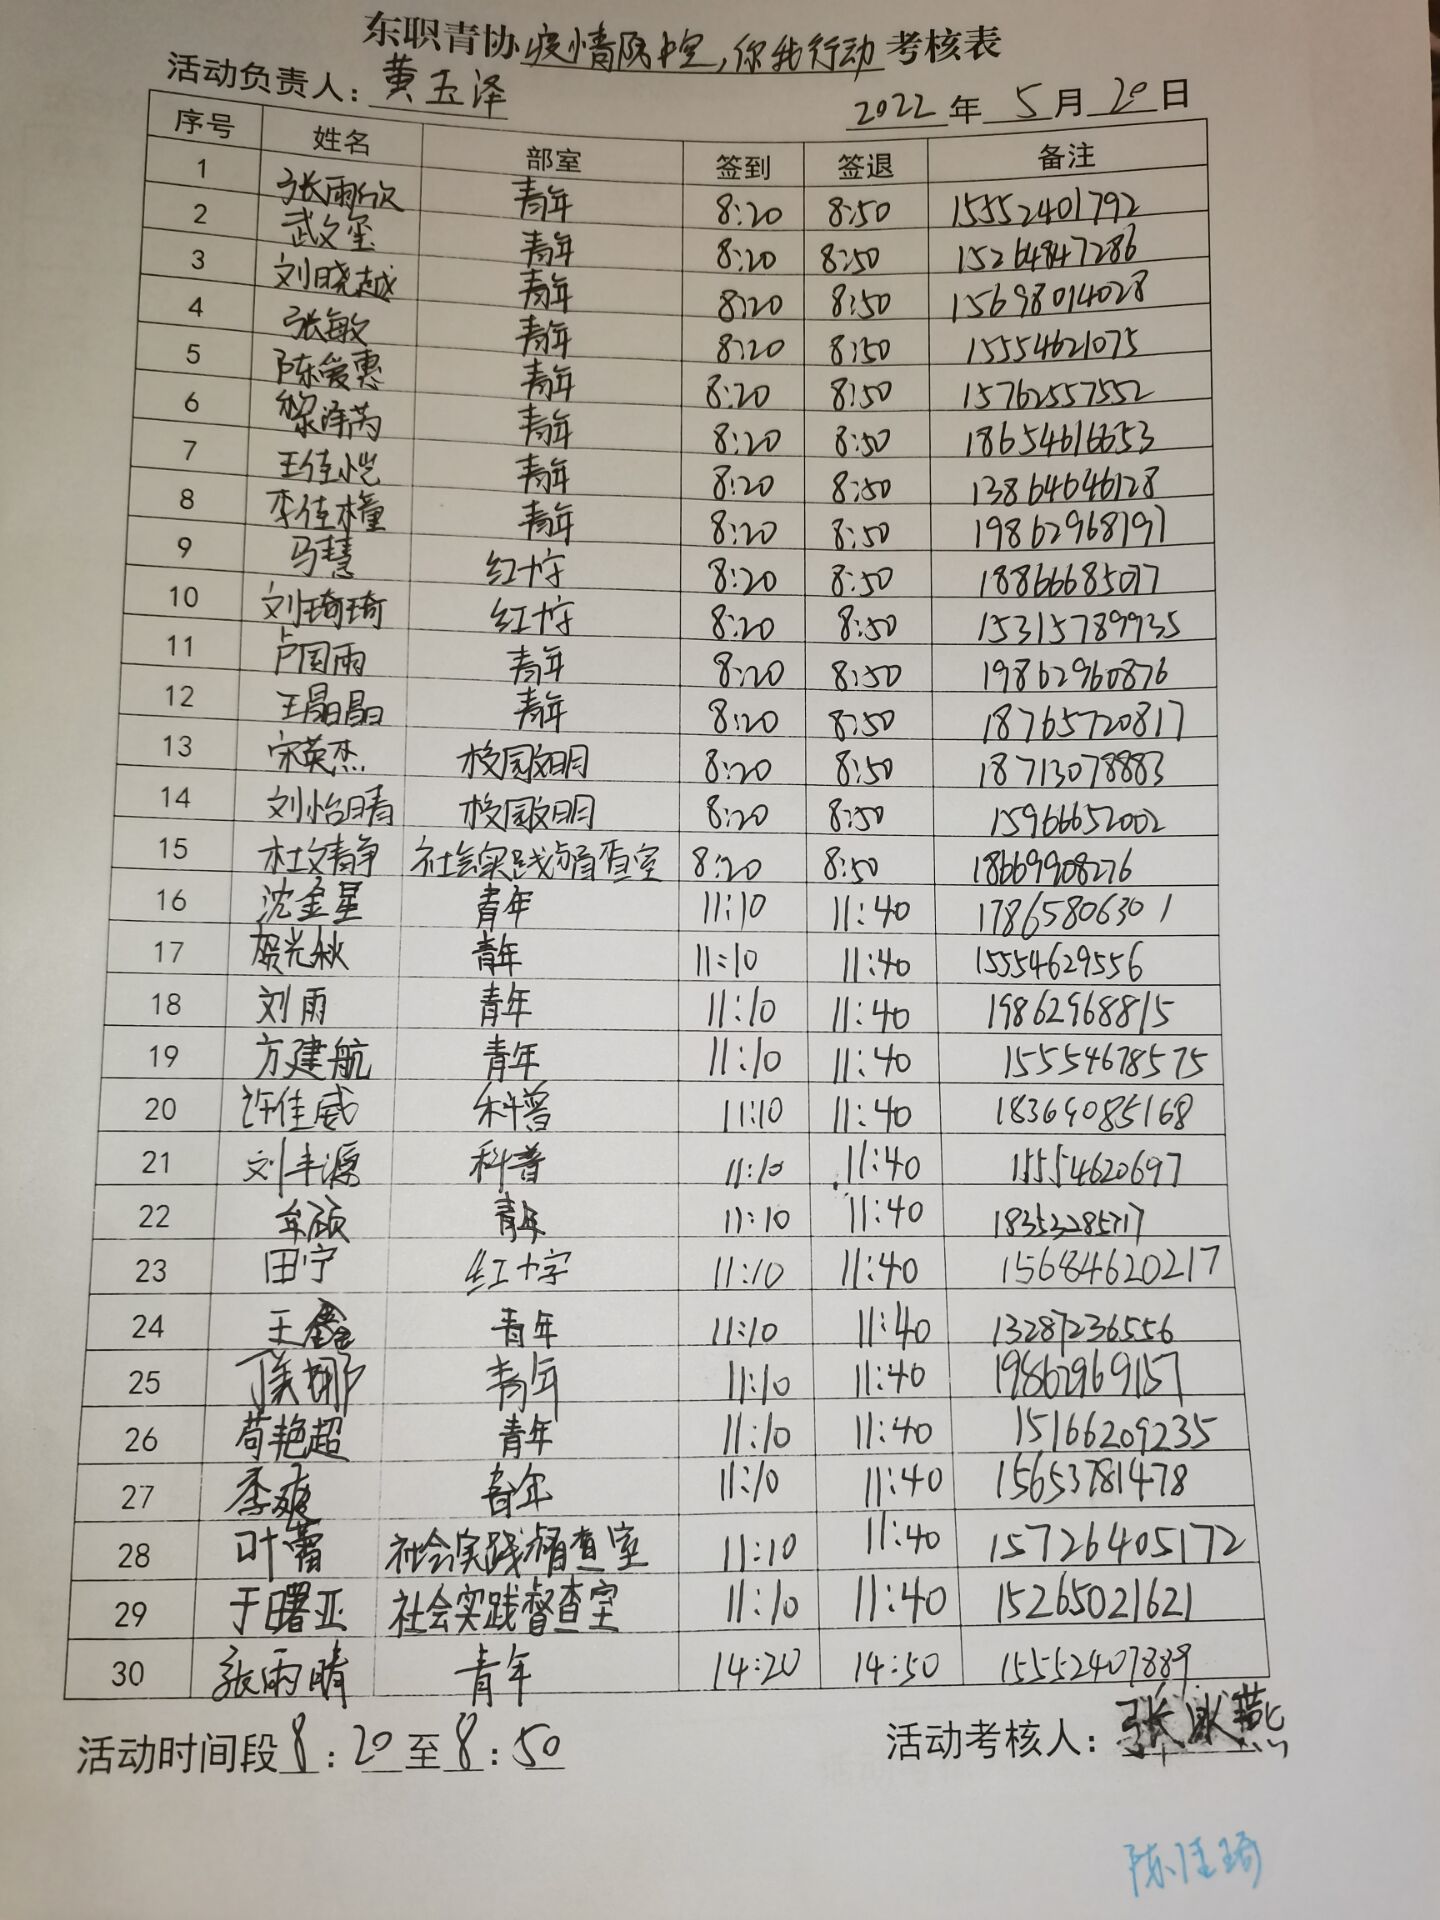 东职青协疫情防控,你我行动考核表
活动负责人:黄玉泽
2022年5月20日
序号 姓名 部室 签到 签退 备注
1 张雨欣 青年 8:20 8:50 15552401792
2 武文玺 青年 8:20 8:50 15264847286
3 刘晓越 青年 8:20 8:50 15698014028
4 张敏 青年 8:20 8:50 15554621075
5 陈爱惠 青年 8:20 8:50 15762557552
6 黎泽芮 青年 8:20 8:50 18654616653
7 王佳恺 青年 8:20 8:50 13864646128
8 李佳橦 青年 8:20 8:50 19862968191
9 马慧 红十字 8:20 8:50 18866685077
10 刘琦琦 红十字 8:20 8:50 15315789935
11 卢国雨 青年 8:20 8:50 19862960876
12 王晶晶 青年 8:20 8:50 18765720817
13 宋英杰 校园文明 8:20 8:50 18713078883
14 刘怡晴 校园文明 8:20 8:50 15966652002
15 杜文静 社会实践督查室 8:20 8:50 18669908276
16 沈金星 青年 11:10 11:40 17865806301
17 贺光秋 青年 11:10 11:40 15554629556
18 刘雨 青年 11:10 11:40 19862968815
19 方建航 青年 11:10 11:40 15554678575
20 许佳威 科普 11:10 11:40 18369085168
21 刘丰源 科普 11:10 11:40 15554620697
22 牟硕 青年 11:10 11:40 18353285717
23 田宁 红十字 11:10 11:40 15684620217
24 王鑫 青年 11:10 11:40 13287236556
25 侯娜 青年 11:10 11:40 19862969157
26 苟艳超 青年 11:10 11:40 15166209235
27 李爽 青年 11:10 11:40 15653781478
28 叶蕾 社会实践督查室 11:10 11:40 15726405172
29 于曙亚 社会实践督查室 11:10 11:40 15265021621
30 张雨晴 青年 14:20 14:50 15552407889
活动时间段8:20至8:50
活动考核人:张冰燕
陈佳琦